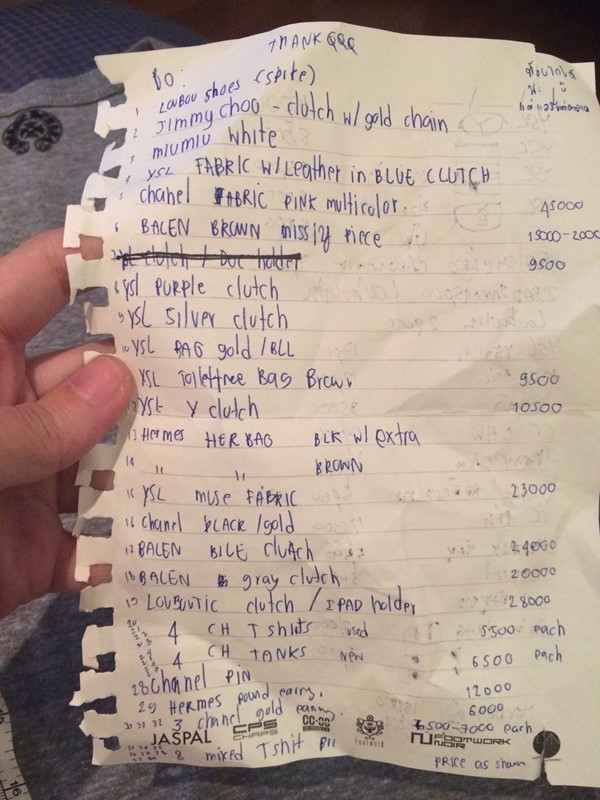 THANK QQQ
BO:
1 LOUBOU shoes (spite)
2 JIMMY CHOO - clutch w/ gold chain
3 miumiu white
4 YSL FABRIC W/Leather in BLUE CLUTCH
5 chanel FABRIC PINK multicolor. 45000
6 BALEN BROWN missjy piece 15000-2000
clutch / Duc holder 9500
8 YSL PURPLE clutch
9 YSL Silver clutch
10 YSL BAG gold /BLL
YSL Toilettree Bag Brown 9500
12 YSL Y clutch 10500
13 Hermes HER BAG BLK w/ extra
14 " " BROWN
15 YSL MUSE FABRIC 23000
16 Chanel BLACK /gold
17 BALEN BILE clutch 24000
18 BALEN gray clutch 20000
19 LOUBOUTIC clutch / IPAD holder 28000
4 CH T shirts used 5500 each
4 CH TANKS NEW 6500 each
28 Chanel PIN 12000
29 HERMES pound earry, 6000
30 31 32 3 chanel gold earry. 6500-7000 each
JASPAL CPS CHAPS CC-OO footwork FOOTWORK NOIR
8 mixed T shit PRICE as shown